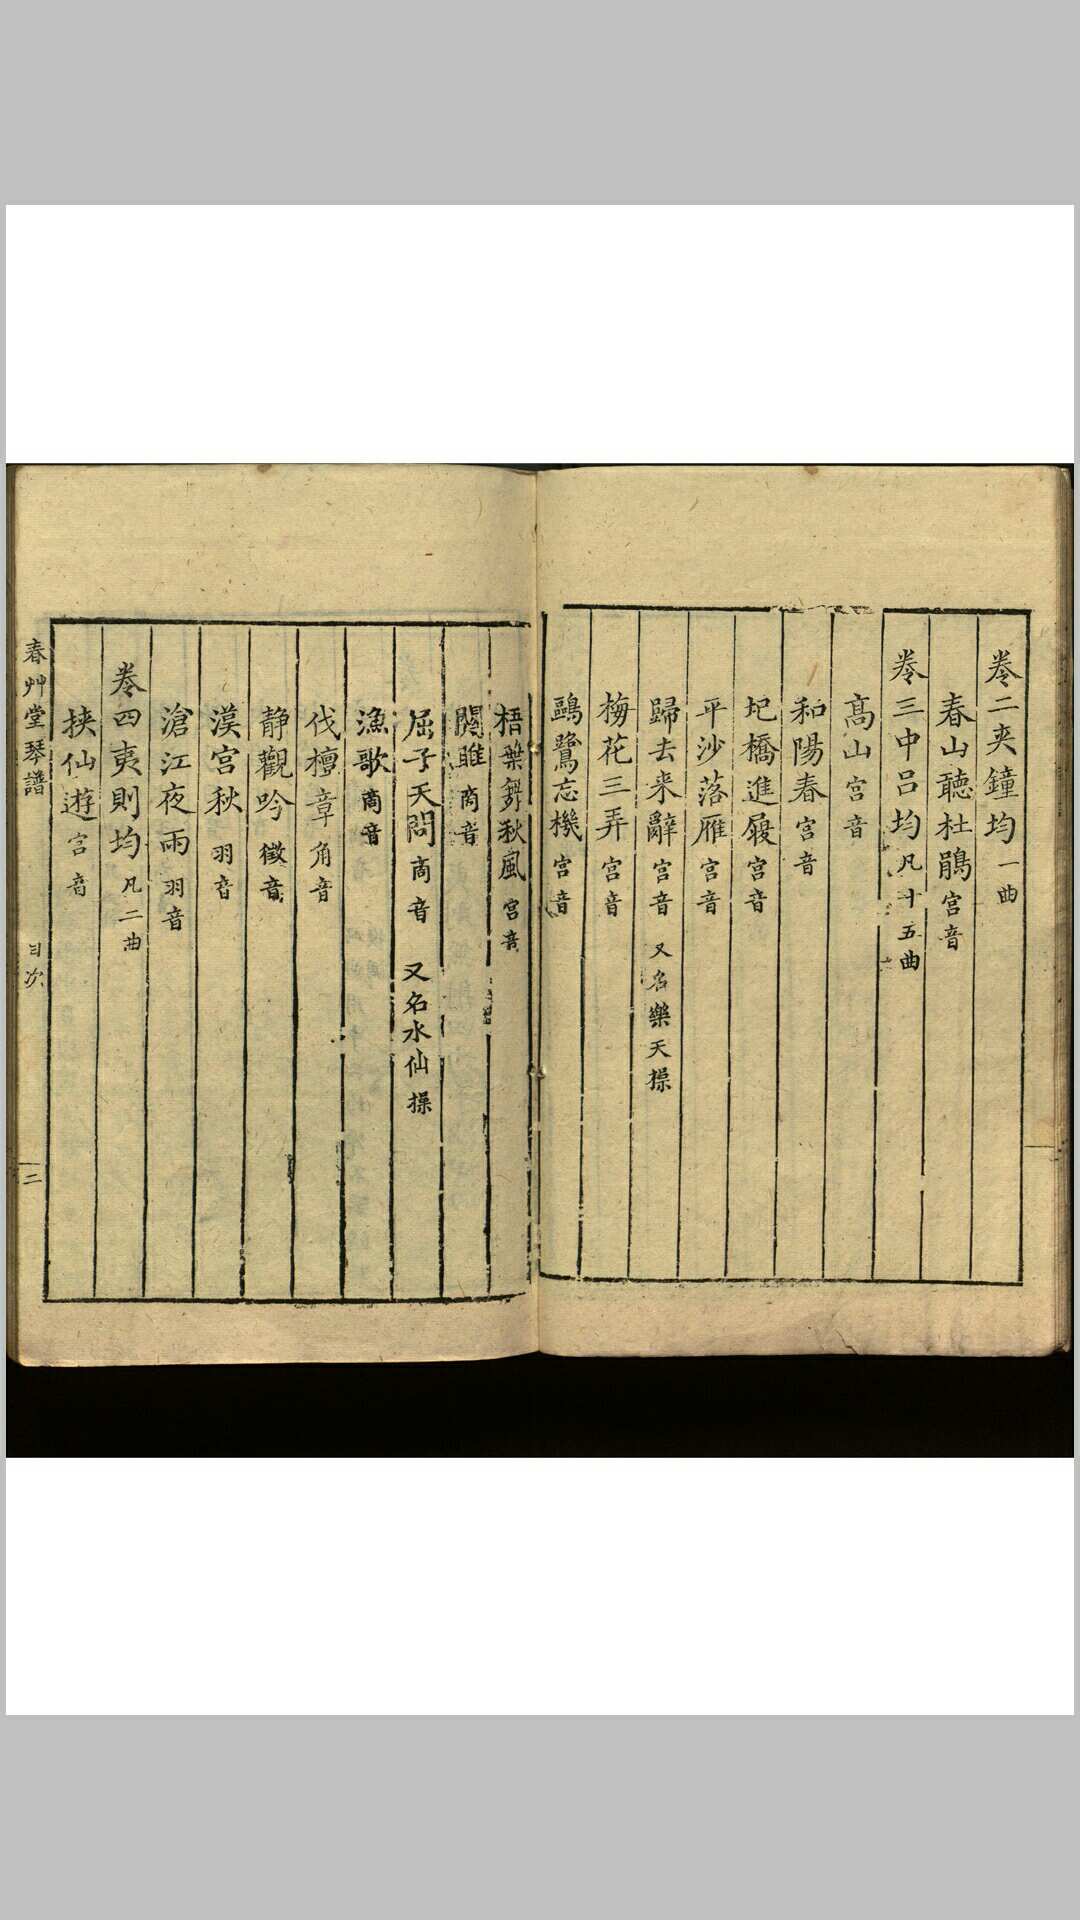 卷二夾鐘均一曲
春山聽杜鵑宫音
卷三中吕均凡十五曲
髙山宫音
和陽春宫音
圯橋進履宫音
平沙落雁宫音
歸去来辭宫音 又名樂天操
梅花三弄宫音
鷗鷺忘機宫音
梧葉舞秋風宫音
關雎商音
屈子天問商音 又名水仙操
漁歌商音
伐檀章角音
靜觀吟徵音
漢宫秋羽音
滄江夜雨羽音
卷四夷則均凡二曲
挟仙遊宫音
春艸堂琴譜 目次 二